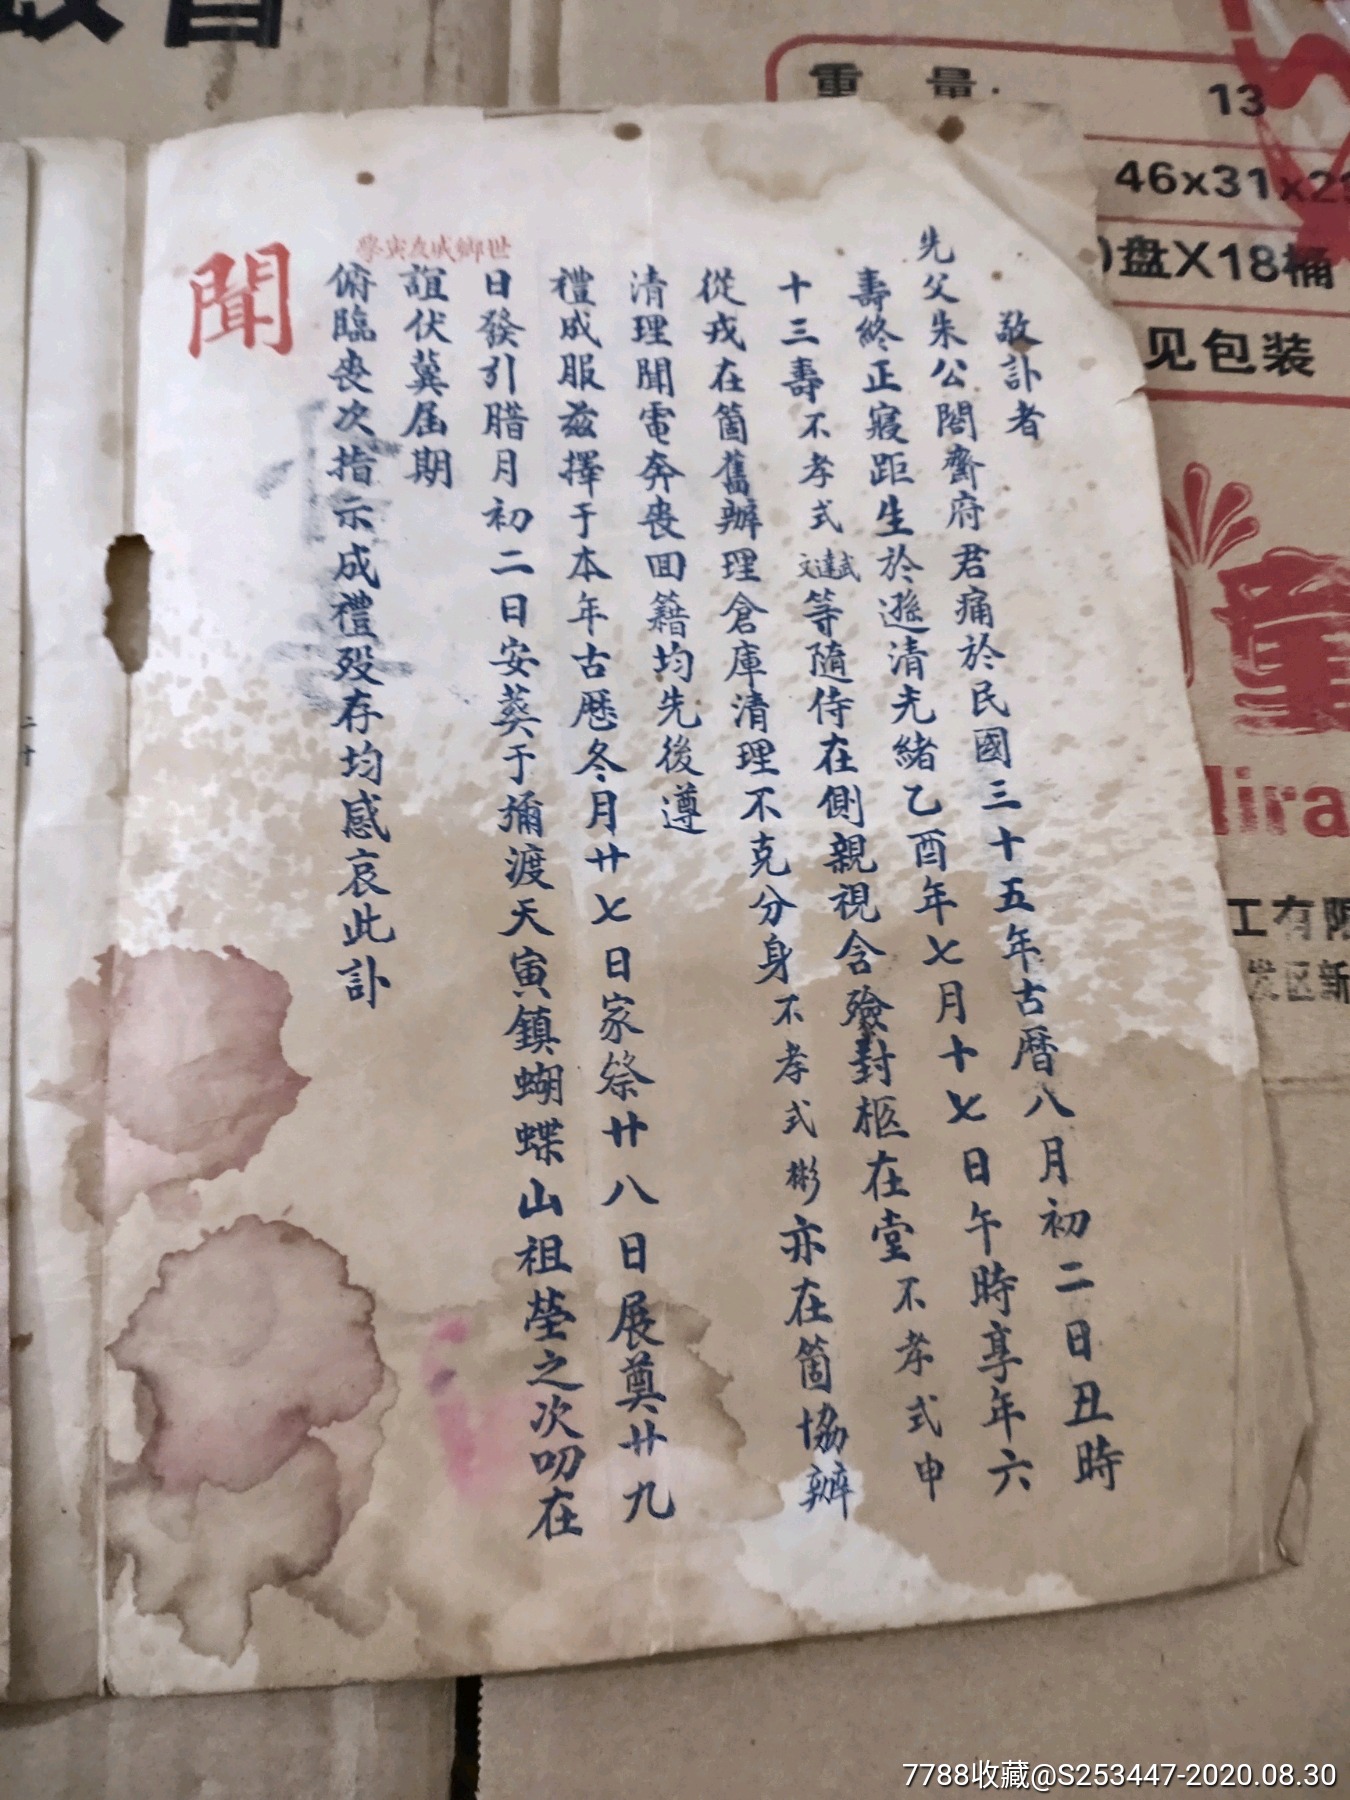 敬訃者
先父朱公閣齋府君痛於民國三十五年古曆八月初二日丑時
壽終正寢距生於遜清光緒乙酉年七月十七日午時享年六
十三壽不孝式武達文等隨侍在側親視含殮封柩在堂不孝式申
從戎在箇舊辦理倉庫清理不克分身不孝式彬亦在箇協辦
清理聞電奔喪回籍均先後遵
禮成服茲擇于本年古歷冬月廿七日家祭廿八日展奠廿九
日發引腊月初二日安葬于彌渡天寅鎮蝴蝶山祖塋之次叨在
世鄉戚友寅學
誼伏冀屆期
俯臨喪次指示成禮歿存均感哀此訃
聞
二十
重 量: 13
46x31x2
盘X18桶
见包装
工有限
发区新
7788收藏@S253447-2020.08.30